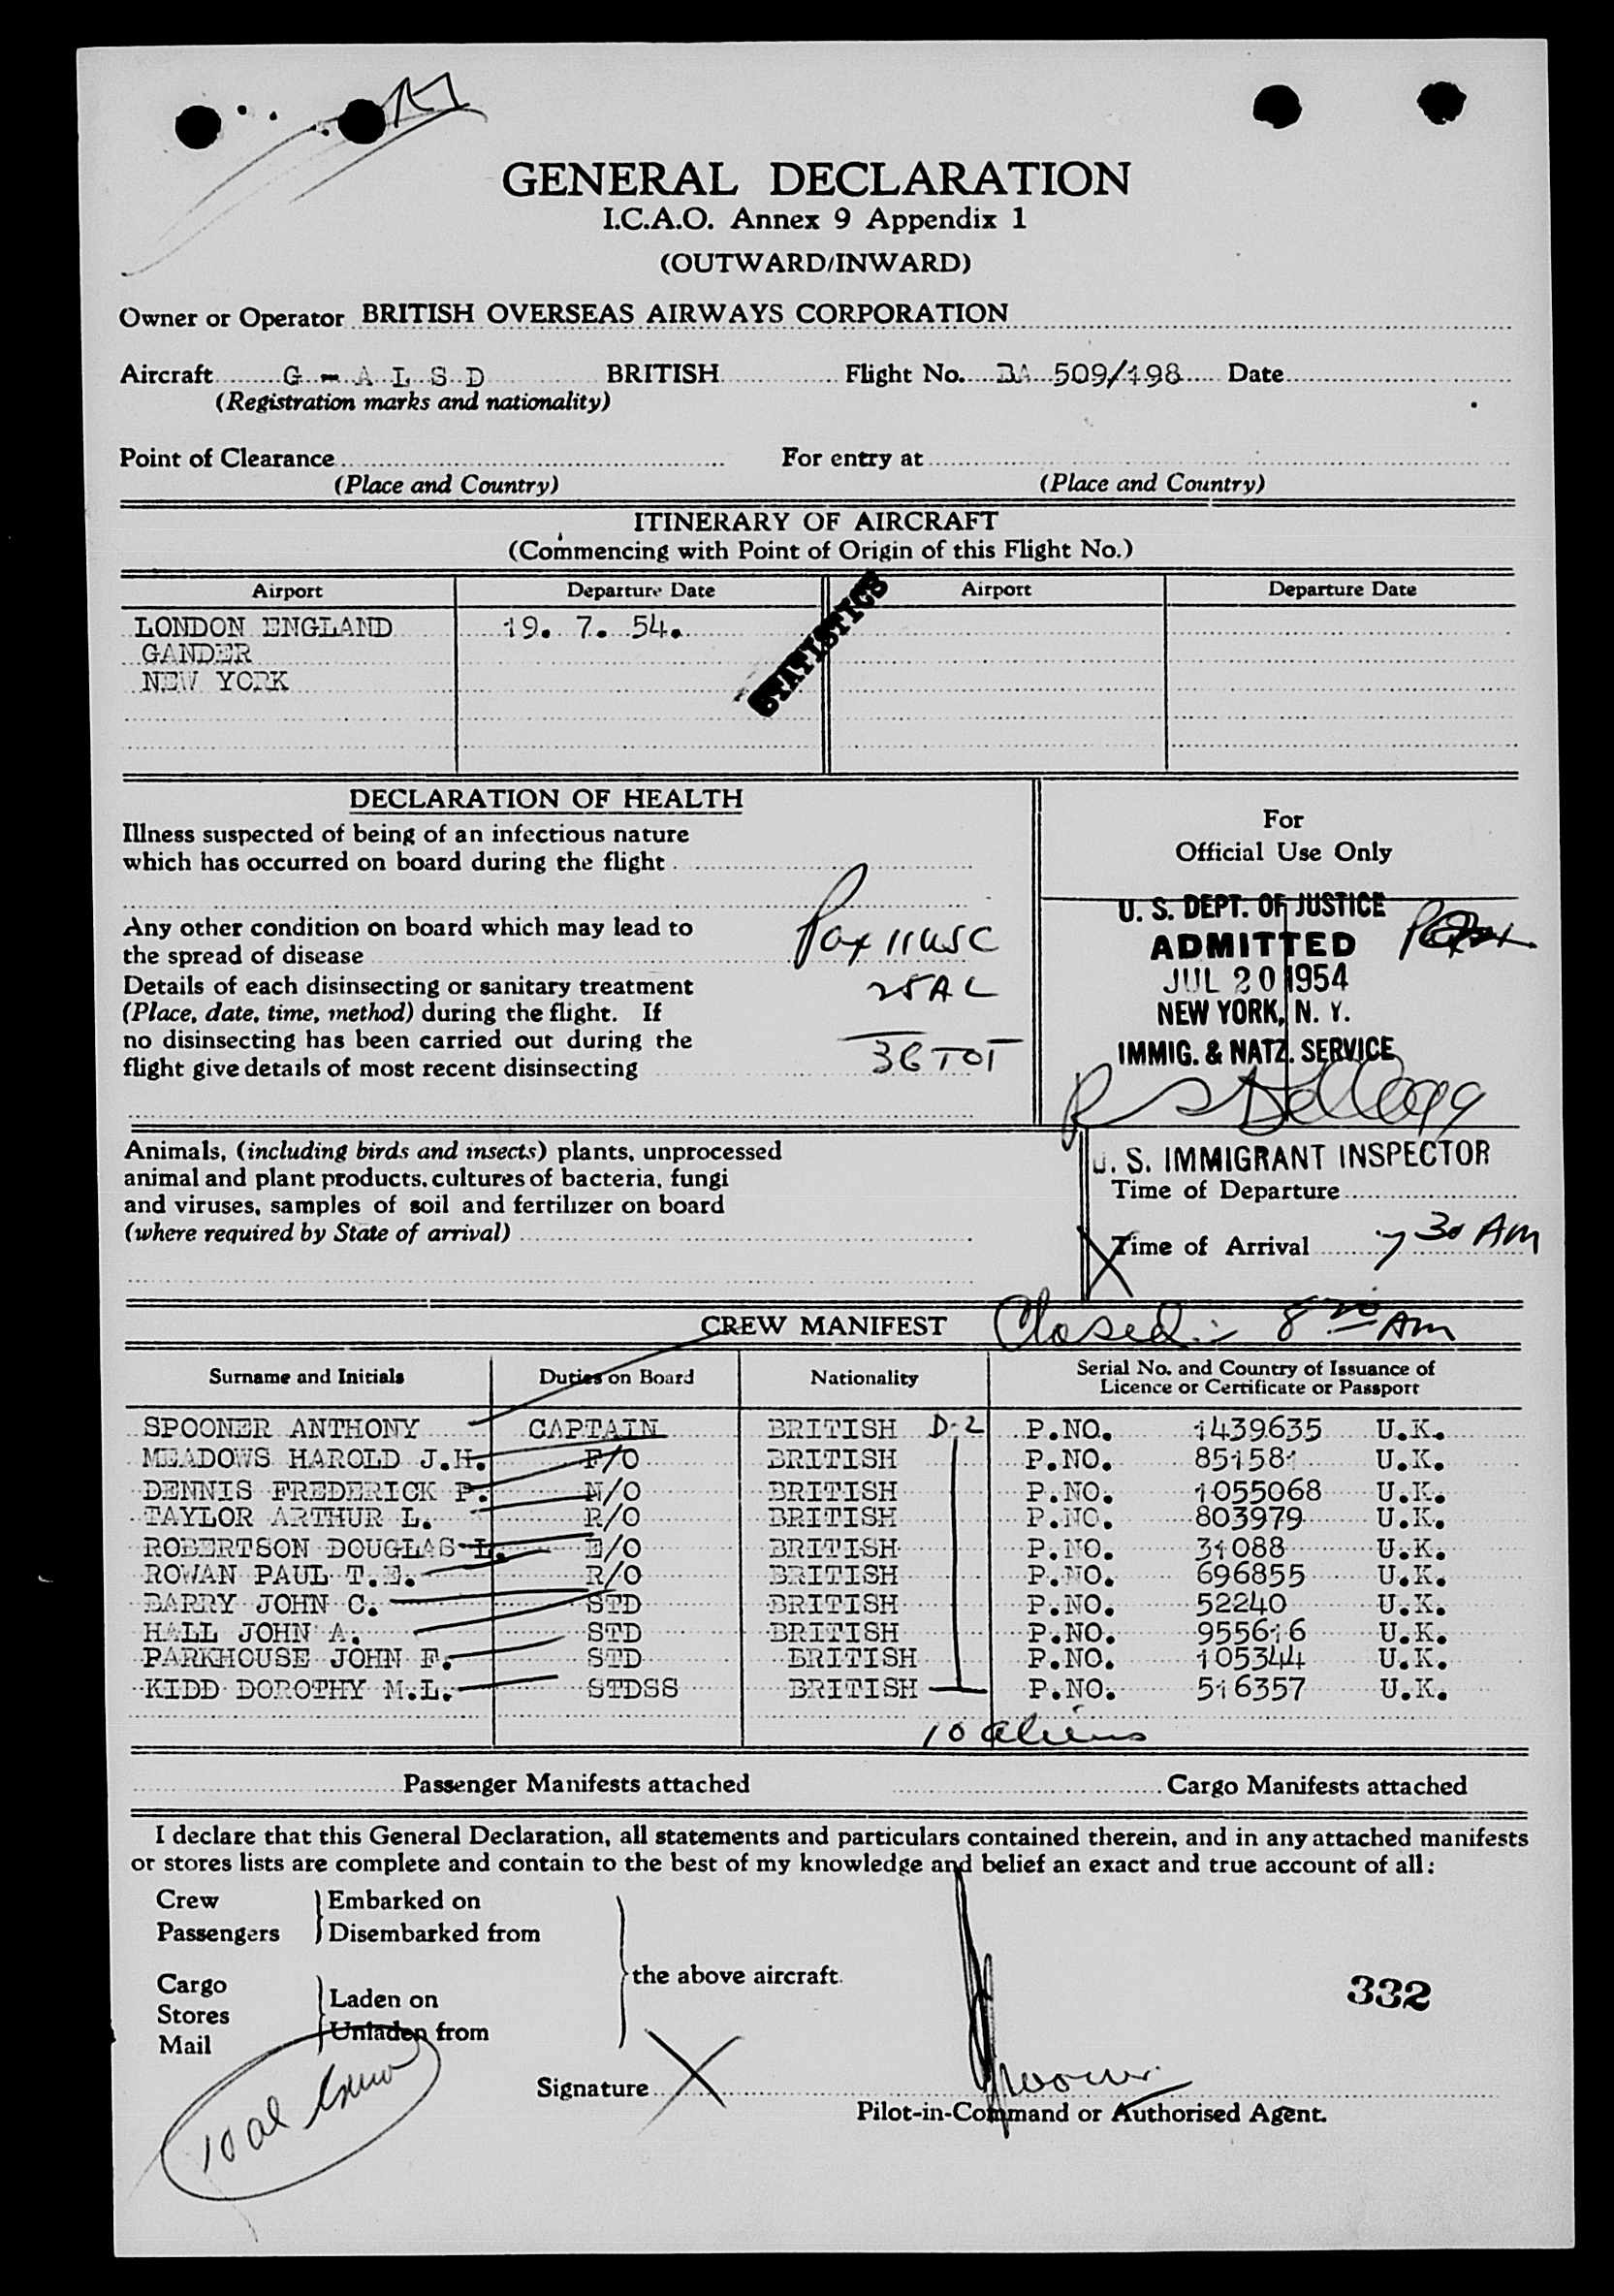 GENERAL DECLARATION
I.C.A.O. Annex 9 Appendix 1
(OUTWARD/INWARD)
Owner or Operator BRITISH OVERSEAS AIRWAYS CORPORATION
Aircraft G - A L S D BRITISH Flight No. BA 509/198 Date
(Registration marks and nationality)
Point of Clearance For entry at
(Place and Country) (Place and Country)
ITINERARY OF AIRCRAFT
(Commencing with Point of Origin of this Flight No.)
Airport Departure Date Airport Departure Date
LONDON ENGLAND 19. 7. 54.
GANDER
NEW YORK
STATISTICS
DECLARATION OF HEALTH
Illness suspected of being of an infectious nature
which has occurred on board during the flight
Any other condition on board which may lead to
the spread of disease
Details of each disinsecting or sanitary treatment
(Place, date, time, method) during the flight. If
no disinsecting has been carried out during the
flight give details of most recent disinsecting
Pax 11 USC
25 AL
36 TOT
For
Official Use Only
U. S. DEPT. OF JUSTICE
ADMITTED
JUL 20 1954
NEW YORK, N. Y.
IMMIG. & NATZ. SERVICE
U. S. IMMIGRANT INSPECTOR
Animals, (including birds and insects) plants, unprocessed
animal and plant products, cultures of bacteria, fungi
and viruses, samples of soil and fertilizer on board
(where required by State of arrival)
Time of Departure
Time of Arrival 7 30 AM
CREW MANIFEST Closed: 8 20 AM
Surname and Initials Duties on Board Nationality Serial No. and Country of Issuance of
Licence or Certificate or Passport
SPOONER ANTHONY CAPTAIN BRITISH D-2 P.NO. 1439635 U.K.
MEADOWS HAROLD J.H. F/O BRITISH P.NO. 851581 U.K.
DENNIS FREDERICK P. N/O BRITISH P.NO. 1055068 U.K.
TAYLOR ARTHUR L. R/O BRITISH P.NO. 803979 U.K.
ROBERTSON DOUGLAS L. E/O BRITISH P.NO. 31088 U.K.
ROWAN PAUL T.E. R/O BRITISH P.NO. 696855 U.K.
BARRY JOHN C. STD BRITISH P.NO. 52240 U.K.
HALL JOHN A. STD BRITISH P.NO. 955616 U.K.
PARKHOUSE JOHN F. STD BRITISH P.NO. 105344 U.K.
KIDD DOROTHY M.L. STDSS BRITISH P.NO. 516357 U.K.
10 aliens
Passenger Manifests attached Cargo Manifests attached
I declare that this General Declaration, all statements and particulars contained therein, and in any attached manifests
or stores lists are complete and contain to the best of my knowledge and belief an exact and true account of all:
Crew Embarked on
Passengers Disembarked from
the above aircraft.
Cargo Laden on
Stores
Unladen from
Mail
332
10 al Crew
Signature Spooner
Pilot-in-Command or Authorised Agent.